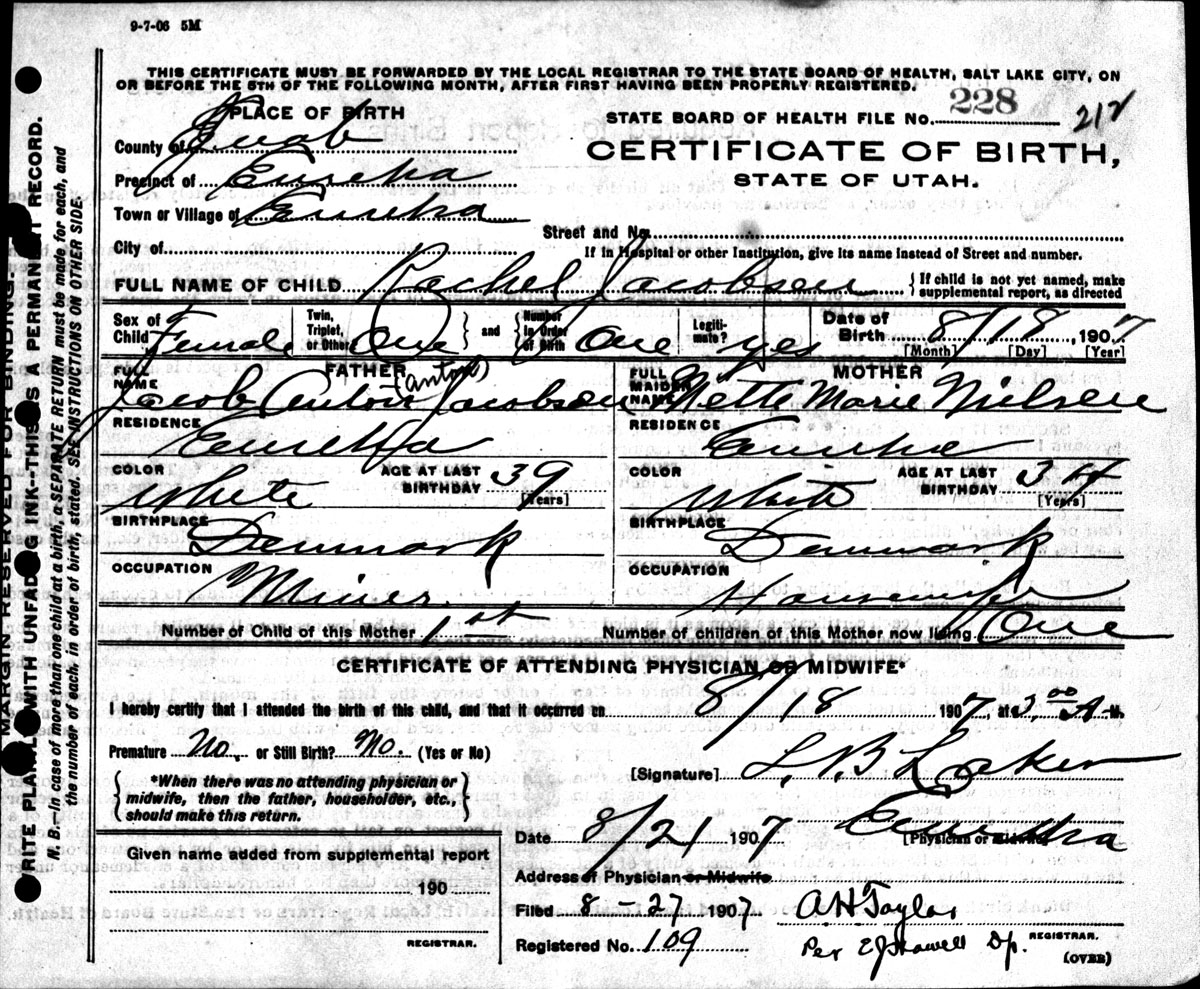 9-7-06 5M
THIS CERTIFICATE MUST BE FORWARDED BY THE LOCAL REGISTRAR TO THE STATE BOARD OF HEALTH, SALT LAKE CITY, ON
OR BEFORE THE 5TH OF THE FOLLOWING MONTH, AFTER FIRST HAVING BEEN PROPERLY REGISTERED.
PLACE OF BIRTH
STATE BOARD OF HEALTH FILE No. 228 212
County of Juab
CERTIFICATE OF BIRTH,
STATE OF UTAH.
Precinct of Eureka
Town or Village of Eureka
Street and No.
City of
If in Hospital or other Institution, give its name instead of Street and number.
FULL NAME OF CHILD Rachel Jacobsen { If child is not yet named, make supplemental report, as directed
Sex of Child Female Twin, Triplet, or Other One } and { Number in Order of Birth One Legitimate? yes Date of Birth 8/18, 1907
[Month] [Day] [Year]
FATHER
MOTHER
FULL NAME Jacob Anton (Antons) Jacobsen
FULL MAIDEN NAME Mette Marie Nielsen
RESIDENCE Eureka
RESIDENCE Eureka
COLOR White AGE AT LAST BIRTHDAY 39 [Years]
COLOR White AGE AT LAST BIRTHDAY 34 [Years]
BIRTHPLACE Denmark
BIRTHPLACE Denmark
OCCUPATION Miner.
OCCUPATION Housewife
Number of Child of this Mother 1st Number of children of this Mother now living One
CERTIFICATE OF ATTENDING PHYSICIAN OR MIDWIFE*
I hereby certify that I attended the birth of this child, and that it occurred on 8/18 1907, at 3.00 A. M.
Premature No. or Still Birth? No. (Yes or No)
{ *When there was no attending physician or midwife, then the father, householder, etc., should make this return. }
[Signature] L. B. Laker
Date 8/21 1907 Eureka
[Physician or Midwife]
Address of Physician or Midwife
Given name added from supplemental report
190
REGISTRAR.
Filed 8-27 1907 A H Taylor
REGISTRAR.
Registered No. 109 Per E J Howell Dp.
(OVER)
MARGIN RESERVED FOR BINDING.
WRITE PLAINLY WITH UNFADING INK—THIS IS A PERMANENT RECORD.
N. B.—In case of more than one child at a birth, a SEPARATE RETURN must be made for each, and
the number of each, in order of birth, stated. SEE INSTRUCTIONS ON OTHER SIDE.